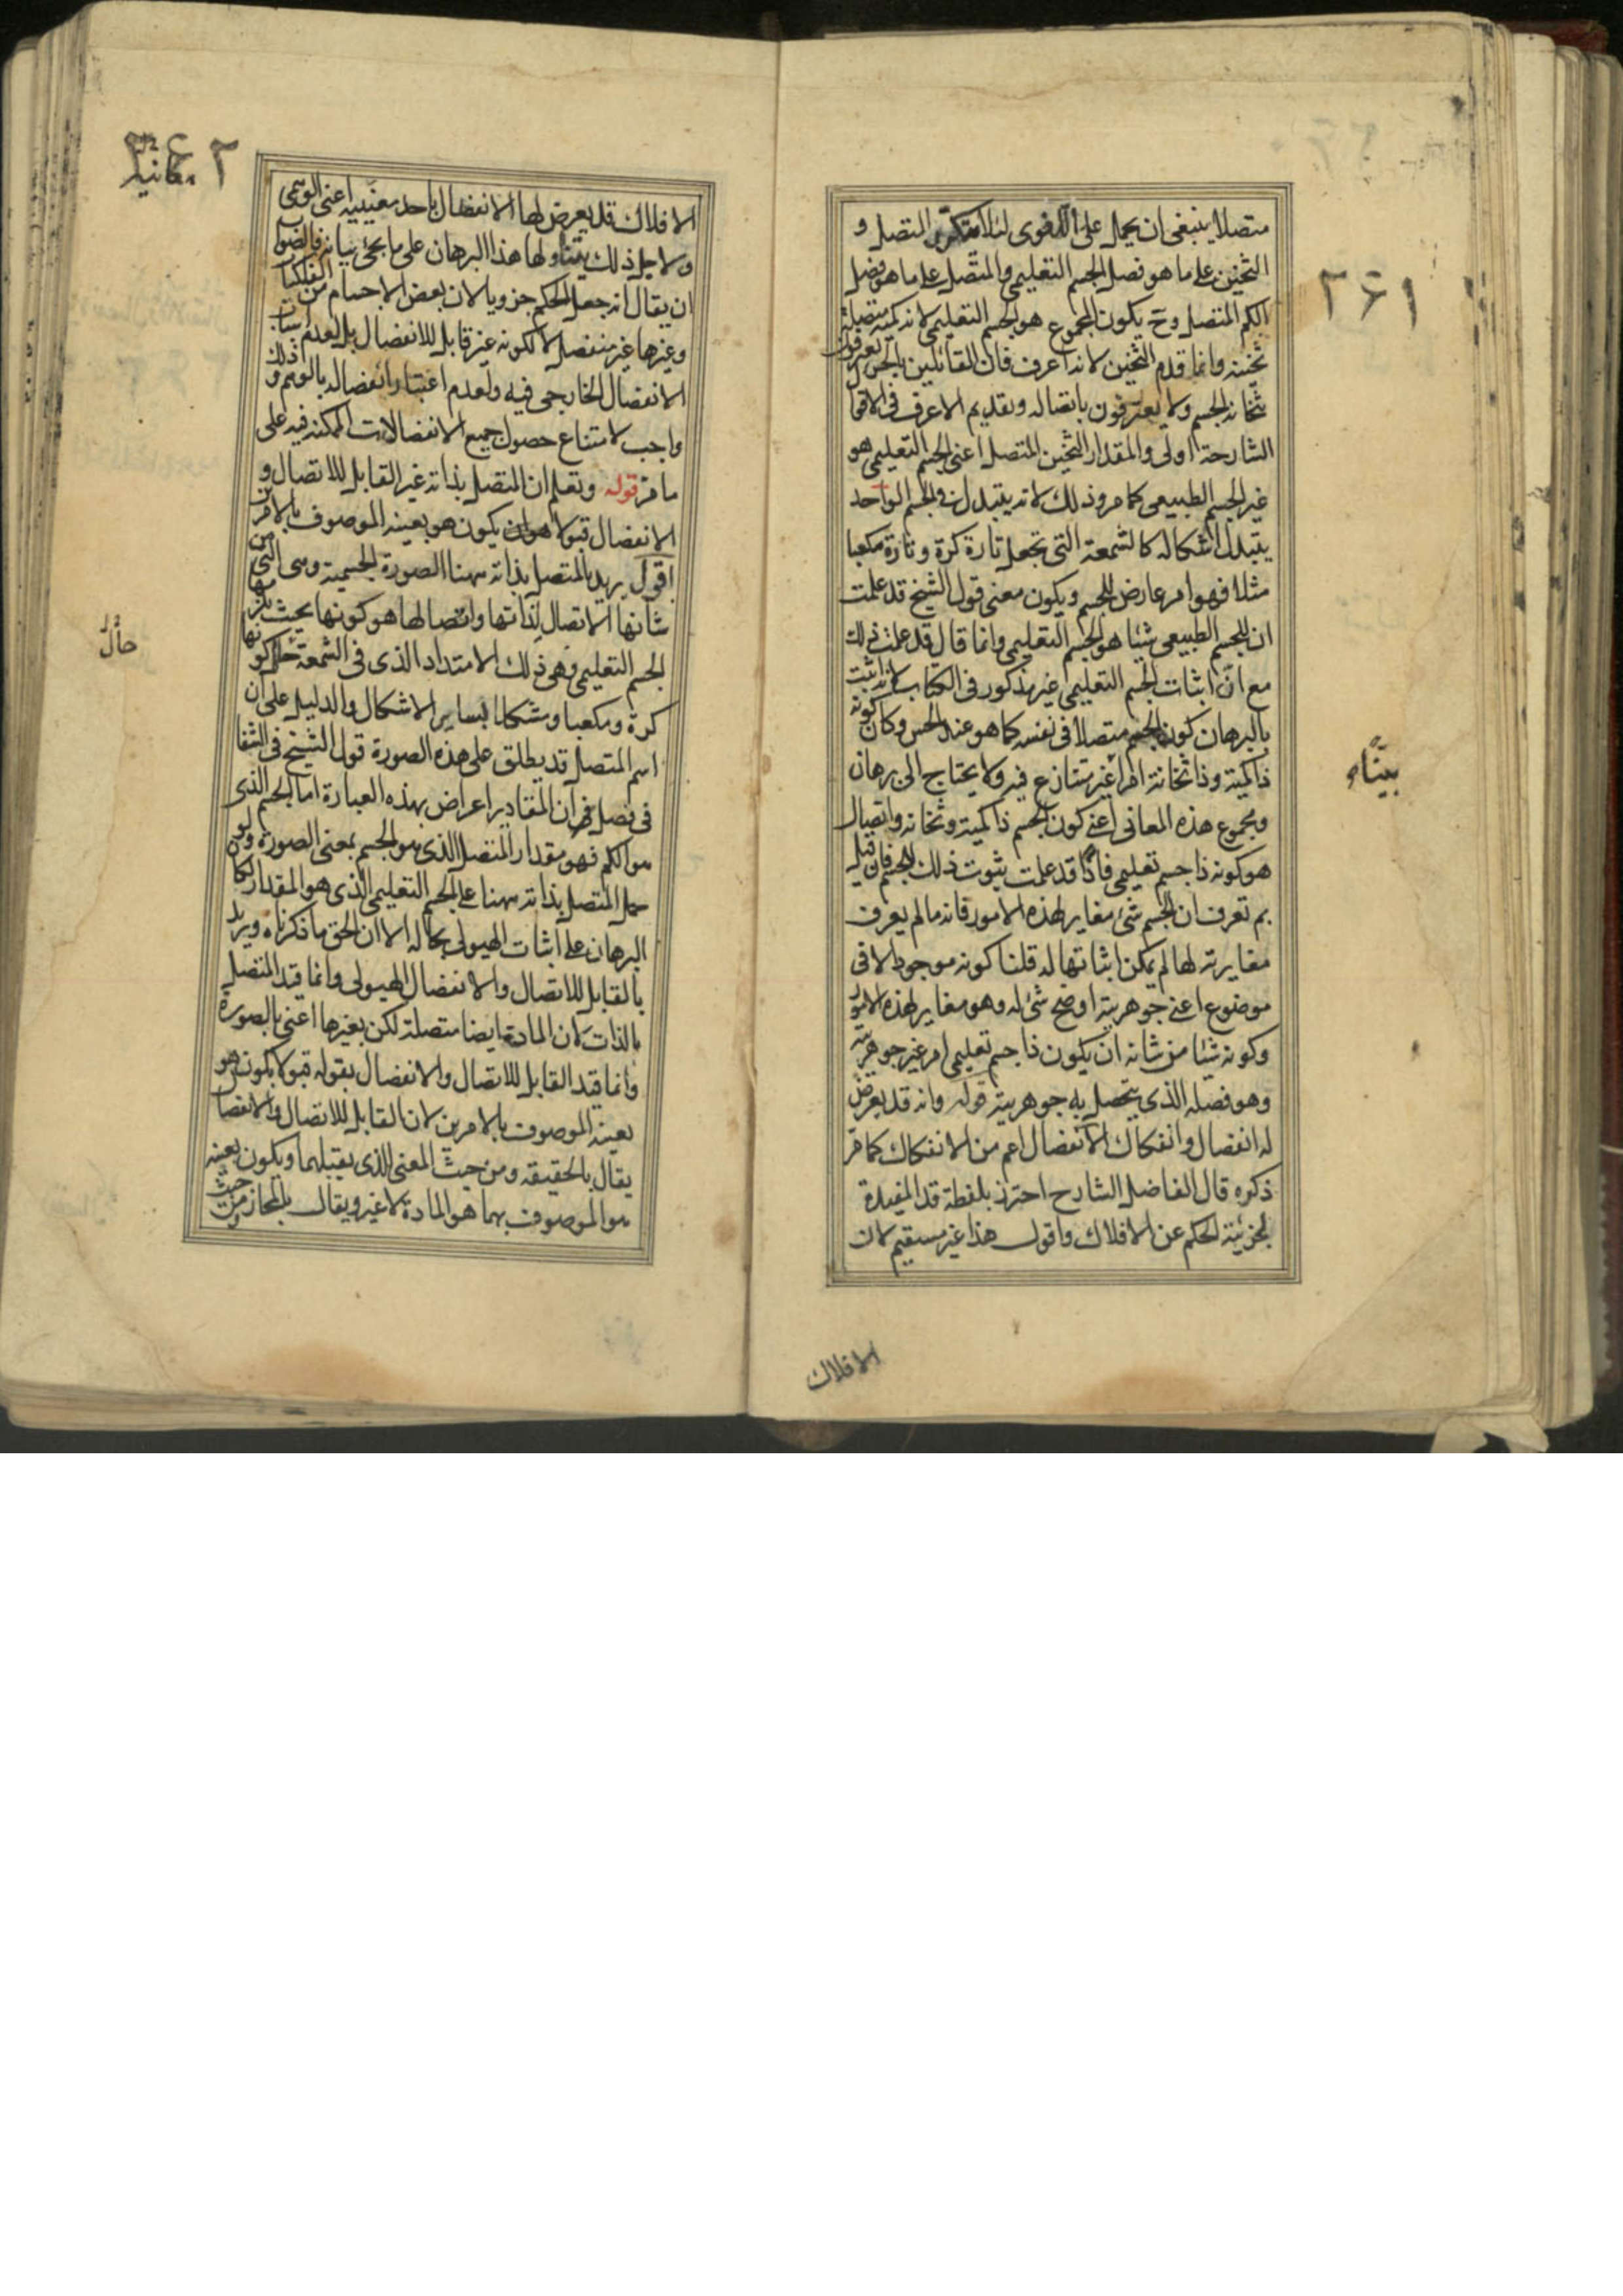 متصلا ينبغى ان يحمل على اللغوى لئلا يتكرر المتصل و
الثخين على ما هو فصل الجسم التعليمى والمتصل على ما هو فصل
الكم المتصل وح يكون المجموع هو الجسم التعليمى لانه كمية متصلة
ثخينة وانما قدم الثخين لانه اعرف فان القائلين بالجزء يعترفون
بثخانة الجسم ولا يعترفون باتصاله وتقديم الاعرف فى الاقوال
الشارحة اولى والمقدار الثخين المتصل اعنى الجسم التعليمى هو
غير الجسم الطبيعى كما مر وذلك لانه يتبدل فى الجسم الواحد
بتبدل اشكاله كالشمعة التى تجعل تارة كرة وتارة مكعبا
مثلا فهو امر عارض للجسم ويكون معنى قول الشيخ قد علمت
ان للجسم الطبيعى شيئا هو الجسم التعليمى وانما قال قد علمت ذلك
مع ان اثبات الجسم التعليمى غير مذكور فى الكتاب لانه اثبت
بالبرهان كون الجسم متصلا فى نفسه كما هو عند الحس وكان كونه
ذا كمية وذا ثخانة امرا غير متنازع فيه ولا يحتاج الى برهان
ومجموع هذه المعانى اعنى كون الجسم ذا كمية وثخانة واتصال
هو كونه ذا جسم تعليمى فاذا قد علمت ثبوت ذلك للجسم فان قيل
بم تعرف ان الجسم شئ مغاير لهذه الامور فانه ما لم يعرف
مغايرته لها لم يمكن اثباتها له قلنا كونه موجودا لا فى
موضوع اعنى جوهريته اوضح شئ له وهو مغاير لهذه الامور
وكونه شيئا من شانه ان يكون ذا جسم تعليمى امر غير جوهريته
وهو فصله الذى يتحصل به جوهريته قوله وانه قد يعرض
له انفصال وانفكاك الانفصال اعم من الانفكاك كما مر
ذكره قال الفاضل الشارح احترز بلفظة قد المفيدة
لجزئية الحكم عن الافلاك واقول هذا غير مستقيم لان
الافلاك
٢٤١
بيناء
الافلاك قد يعرض لها الانفصال باحد معنييه اعنى الوهمى
ولاجل ذلك يتناولها هذا البرهان على ما يجئ بيانه فالصواب
ان يقال انه جعل الحكم جزويا لان بعض الاجسام من الفلكيات
وغيرها غير منفصل لا لكونه غير قابل للانفصال بل لعدم اسباب
الانفصال الخارجى فيه ولعدم اعتبار انفصاله بالوهم و اذلك
واجب لامتناع حصول جميع الانفصالات الممكنة فيه على
ما مر قوله وتعلم ان المتصل بذاته غير القابل للاتصال و
الانفصال قبولا هو ان يكون هو بعينه الموصوف بالامرين
اقول يريد بالمتصل بذاته ههنا الصورة الجسمية وهى التى من
شانها الاتصال لذاتها واتصالها هو كونها بحيث يلزمها
الجسم التعليمى وهى ذلك الامتداد الذى فى الشمعة حال كونها
كرة ومكعبا ومشكلا بساير الاشكال والدليل على ان
اسم المتصل قد يطلق على هذه الصورة قول الشيخ فى الشفا
فى فصل فى ان المقادير اعراض بهذه العبارة اما الجسم الذى
هو الكم فهو مقدار المتصل الذى هو الجسم بمعنى الصورة ولو
حمل المتصل بذاته ههنا على الجسم التعليمى الذى هو المقدار لكان
البرهان على اثبات الهيولى بحاله الا ان الحق ما ذكرناه ويريد
بالقابل للاتصال والانفصال الهيولى وانما قيد المتصل
بالذات لان المادة ايضا متصلة لكن بغيرها اعنى بالصورة
وانما قيد القابل للاتصال والانفصال بقوله قبولا يكون هو
بعينه الموصوف بالامرين لان القابل للاتصال والانفصال
يقال بالحقيقة ومن حيث المعنى للذى يقبلهما ويكون بعينه
هو الموصوف بهما هو المادة لا غير ويقال بالمجاز ومن حيث
٢٤٢
حال